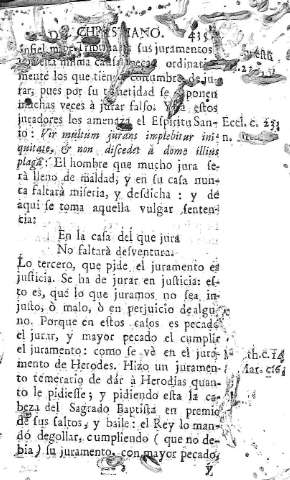 CHRISTIANO. 435
sus juramentos
mente los que costumbre de ju-
rar, pues por su ponen
muchas veces à jurar falso. Y à estos
juradores les amenaza el Espiritu San-
to: Vir multùm jurans implebitur ini-
quitate, & non discedet à domo illius
plaga: El hombre que mucho jura se-
rà lleno de maldad, y en su casa nun-
ca faltarà miseria, y desdicha: y de
aqui se toma aquella vulgar senten-
cia:
En la casa del que jura
No faltarà desventura.
Lo tercero, que pide el juramento es
justicia. Se ha de jurar en justicia: es-
to es, que lo que juramos no sea in-
justo, ò malo, ò en perjuicio de algu-
no. Porque en estos casos es pecado
el jurar, y mayor pecado el cumplir
el juramento: como se vè en el jura-
mento de Herodes. Hizo un juramen-
to temerario de dàr à Herodias quan-
to le pidiesse; y pidiendo esta la ca-
beza del Sagrado Baptista en premio
de sus saltos, y baile: el Rey lo man-
dò degollar, cumpliendo (que no de-
bia) su juramento, con mayor pecado,
y
Eccl. c. 23.
th. c. 14
Mar. c. 6.